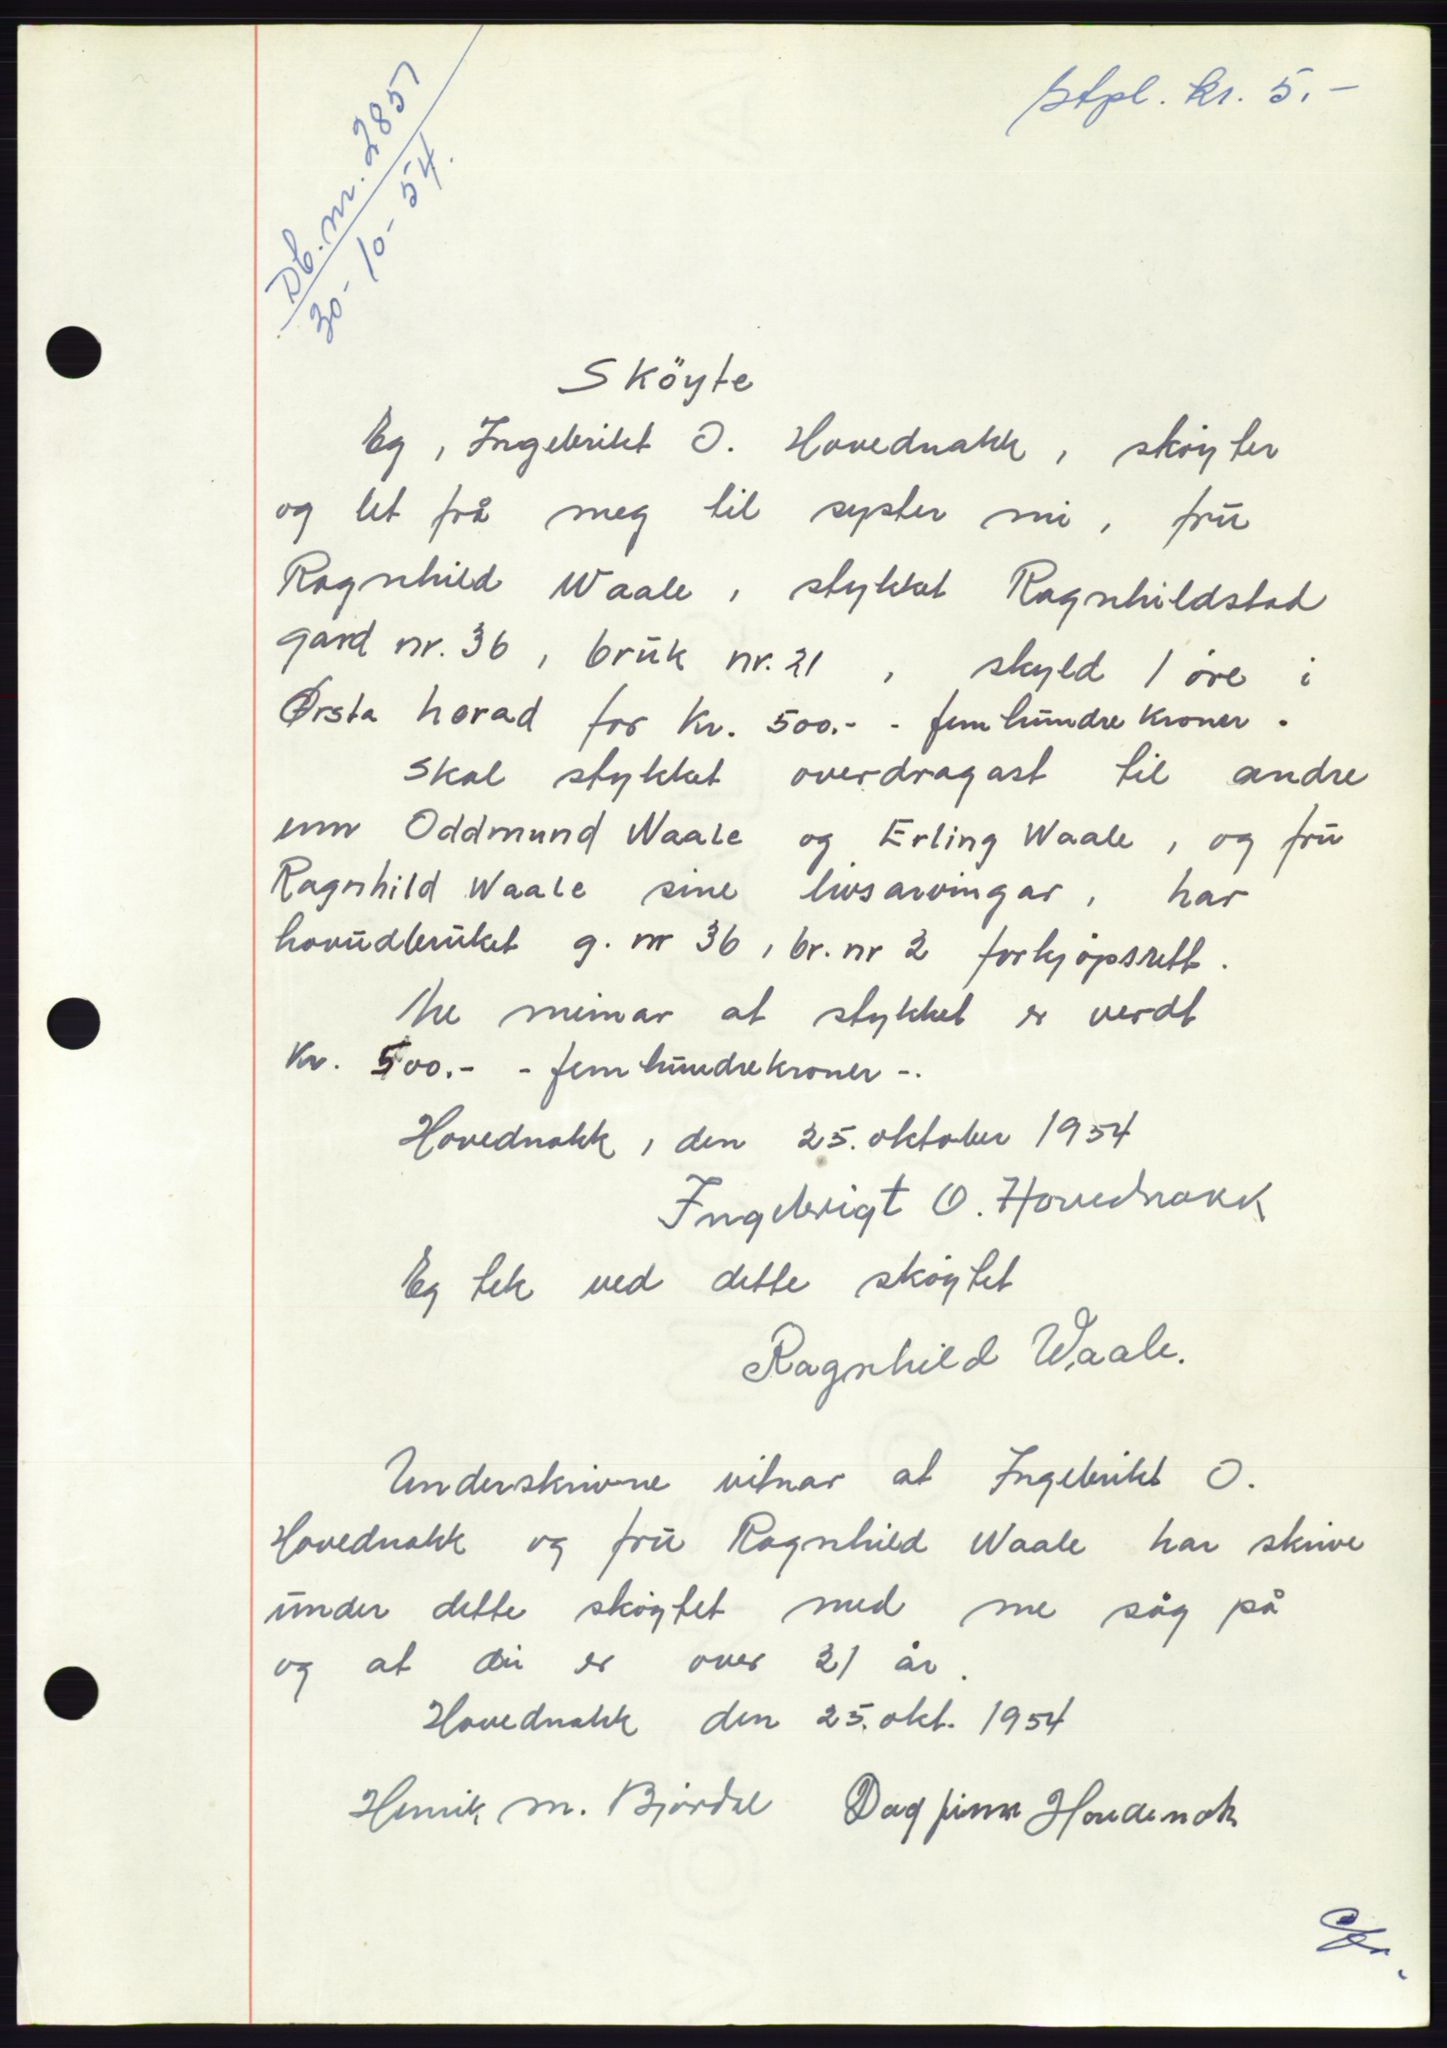 Stpl. kr. 5.-
Db. nr. 2857
30-10-54.
Sköyte
Eg, Ingebrikt O. Hovednakk, skøyter
og let frå meg til syster mi, frü
Ragnhild Waale, stykket Ragnhildstad
gard nr. 36, brük nr. 21, skyld 1 öre i
Ørsta herad for kr. 500.- - fem hündre kroner.
Skal stykket overdragast til andre
enn Oddmund Waale og Erling Waale, og frü
Ragnhild Waale sine livsarvingar, har
hovüdbrüket g. nr 36, br. nr 2 forkjøpsrett.
Me meinar at stykket er verdt
kr. 500.- - fem hündrekroner -.
Hovednakk, den 25. oktober 1954
Ingebrigt O. Hovednakk
Eg tek ved dette skøytet
Ragnhild Waale.
Ünderskrivne vitnar at Ingebrikt O.
Hovednakk og frü Ragnhild Waale har skrive
ünder dette skøytet med me såg på
og at dei er over 21 år.
Hovednakk den 25. okt. 1954
Henrik M. Bjørdal Dagfinn Hovdenak